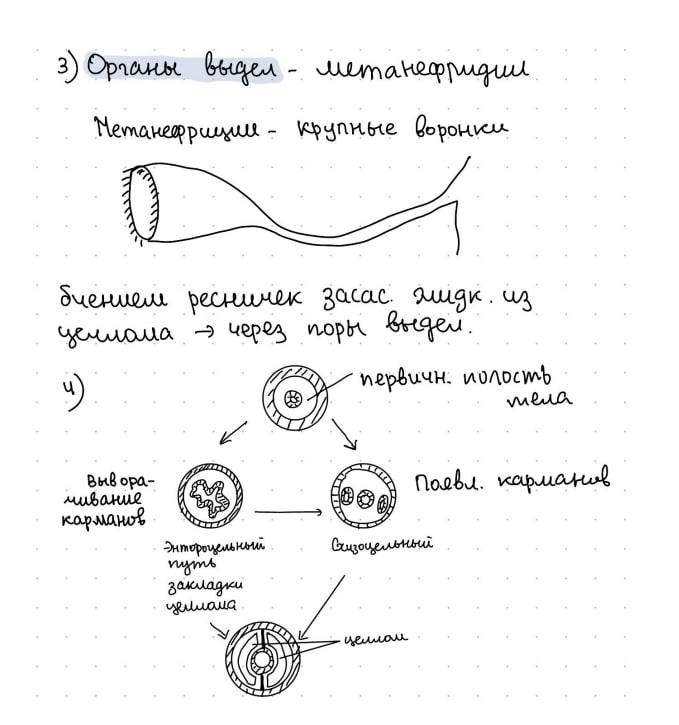 3) Органы выдел - метанефридии
Метанефридии - крупные воронки
биением ресничек засас. жидк. из
целлома → через поры выдел.
4)
первичн. полость
тела
Вывора-
чивание
карманов
Появл. карманов
Энтороцельный
путь
закладки
целлома
Схизоцельный
целлом